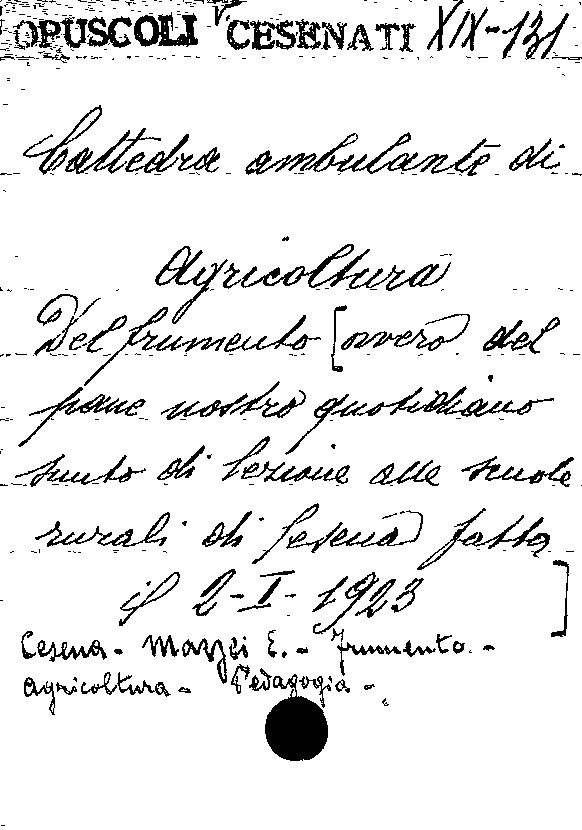 OPUSCOLI CESENATI XIX-131
Cattedra ambulante di
Agricoltura
Del frumento [ovvero del
pane nostro quotidiano
sunto di lezione alle scuole
rurali di Cesena fatta
il 2-I-1923 ]
Cesena - Mazzei E. - Frumento. -
Agricoltura - Pedagogia -